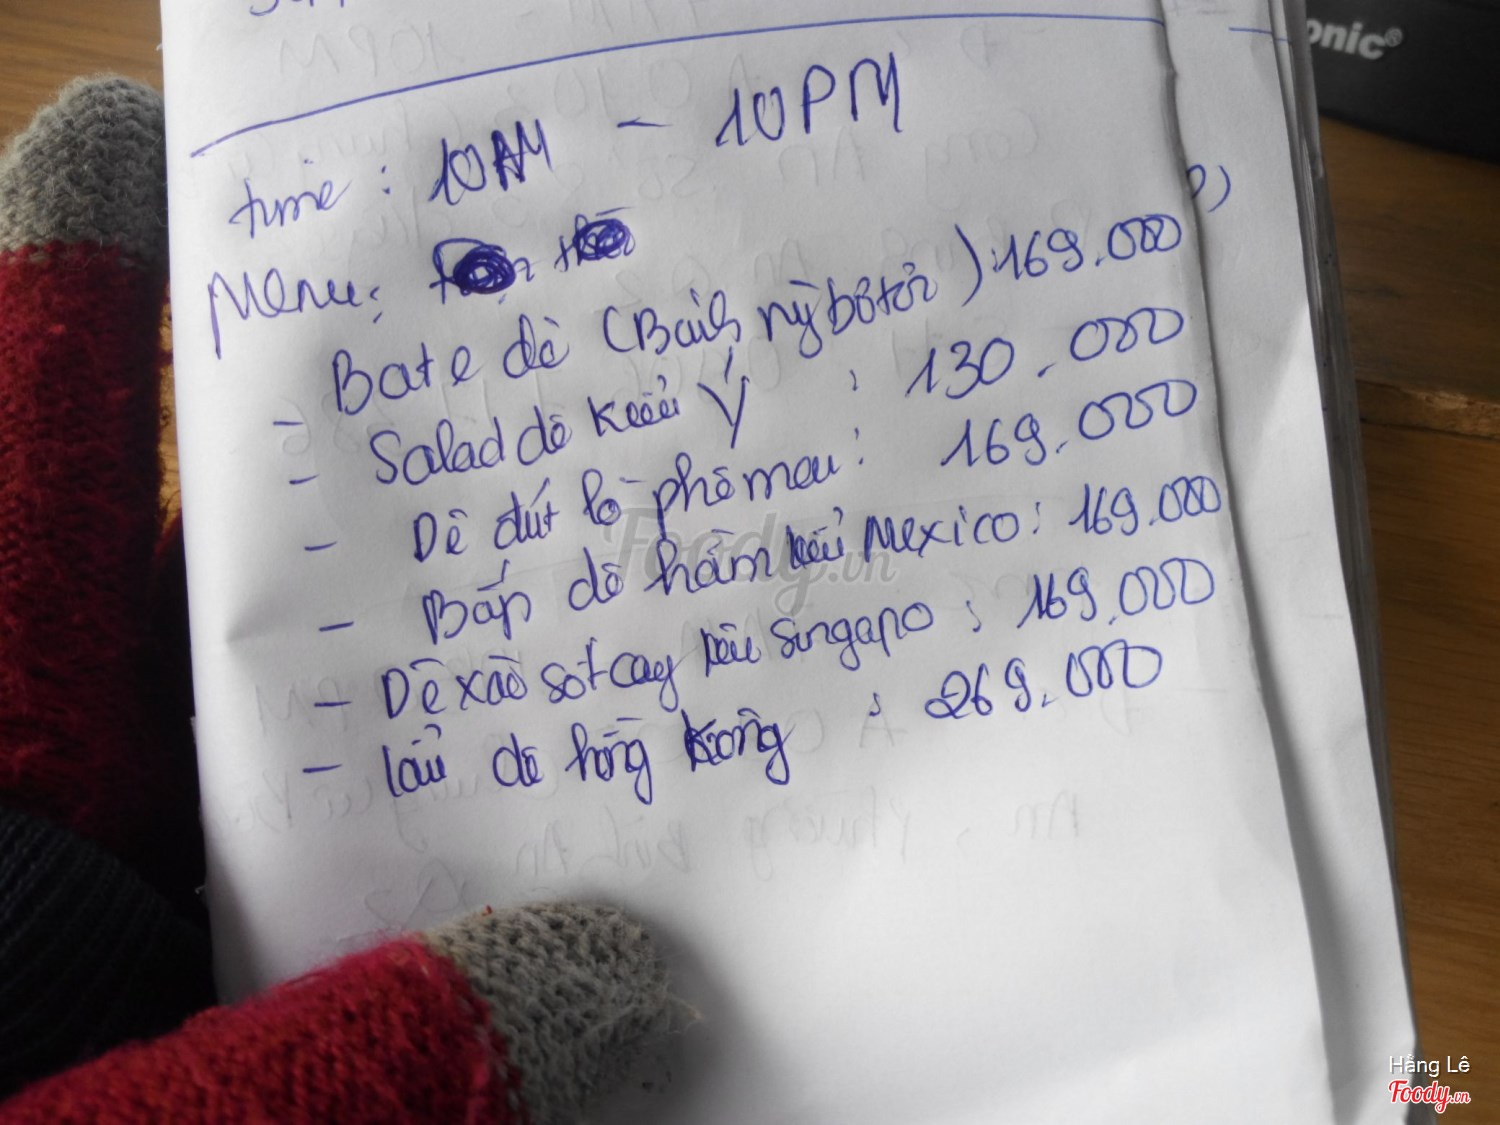 onic®
time : 10AM - 10PM
Menu:
- Bate dê (Bánh mỳ bơ tỏi) : 169.000
- Salad dê kiểu Ý : 130.000
- Dê đút lò phô mai : 169.000
- Bắp dê hầm kiểu Mexico : 169.000
- Dê xào sốt cay kiểu singapo : 169.000
- lẩu dê hồng kông : 269.000
Foody.vn
Hằng Lê
Foody.vn